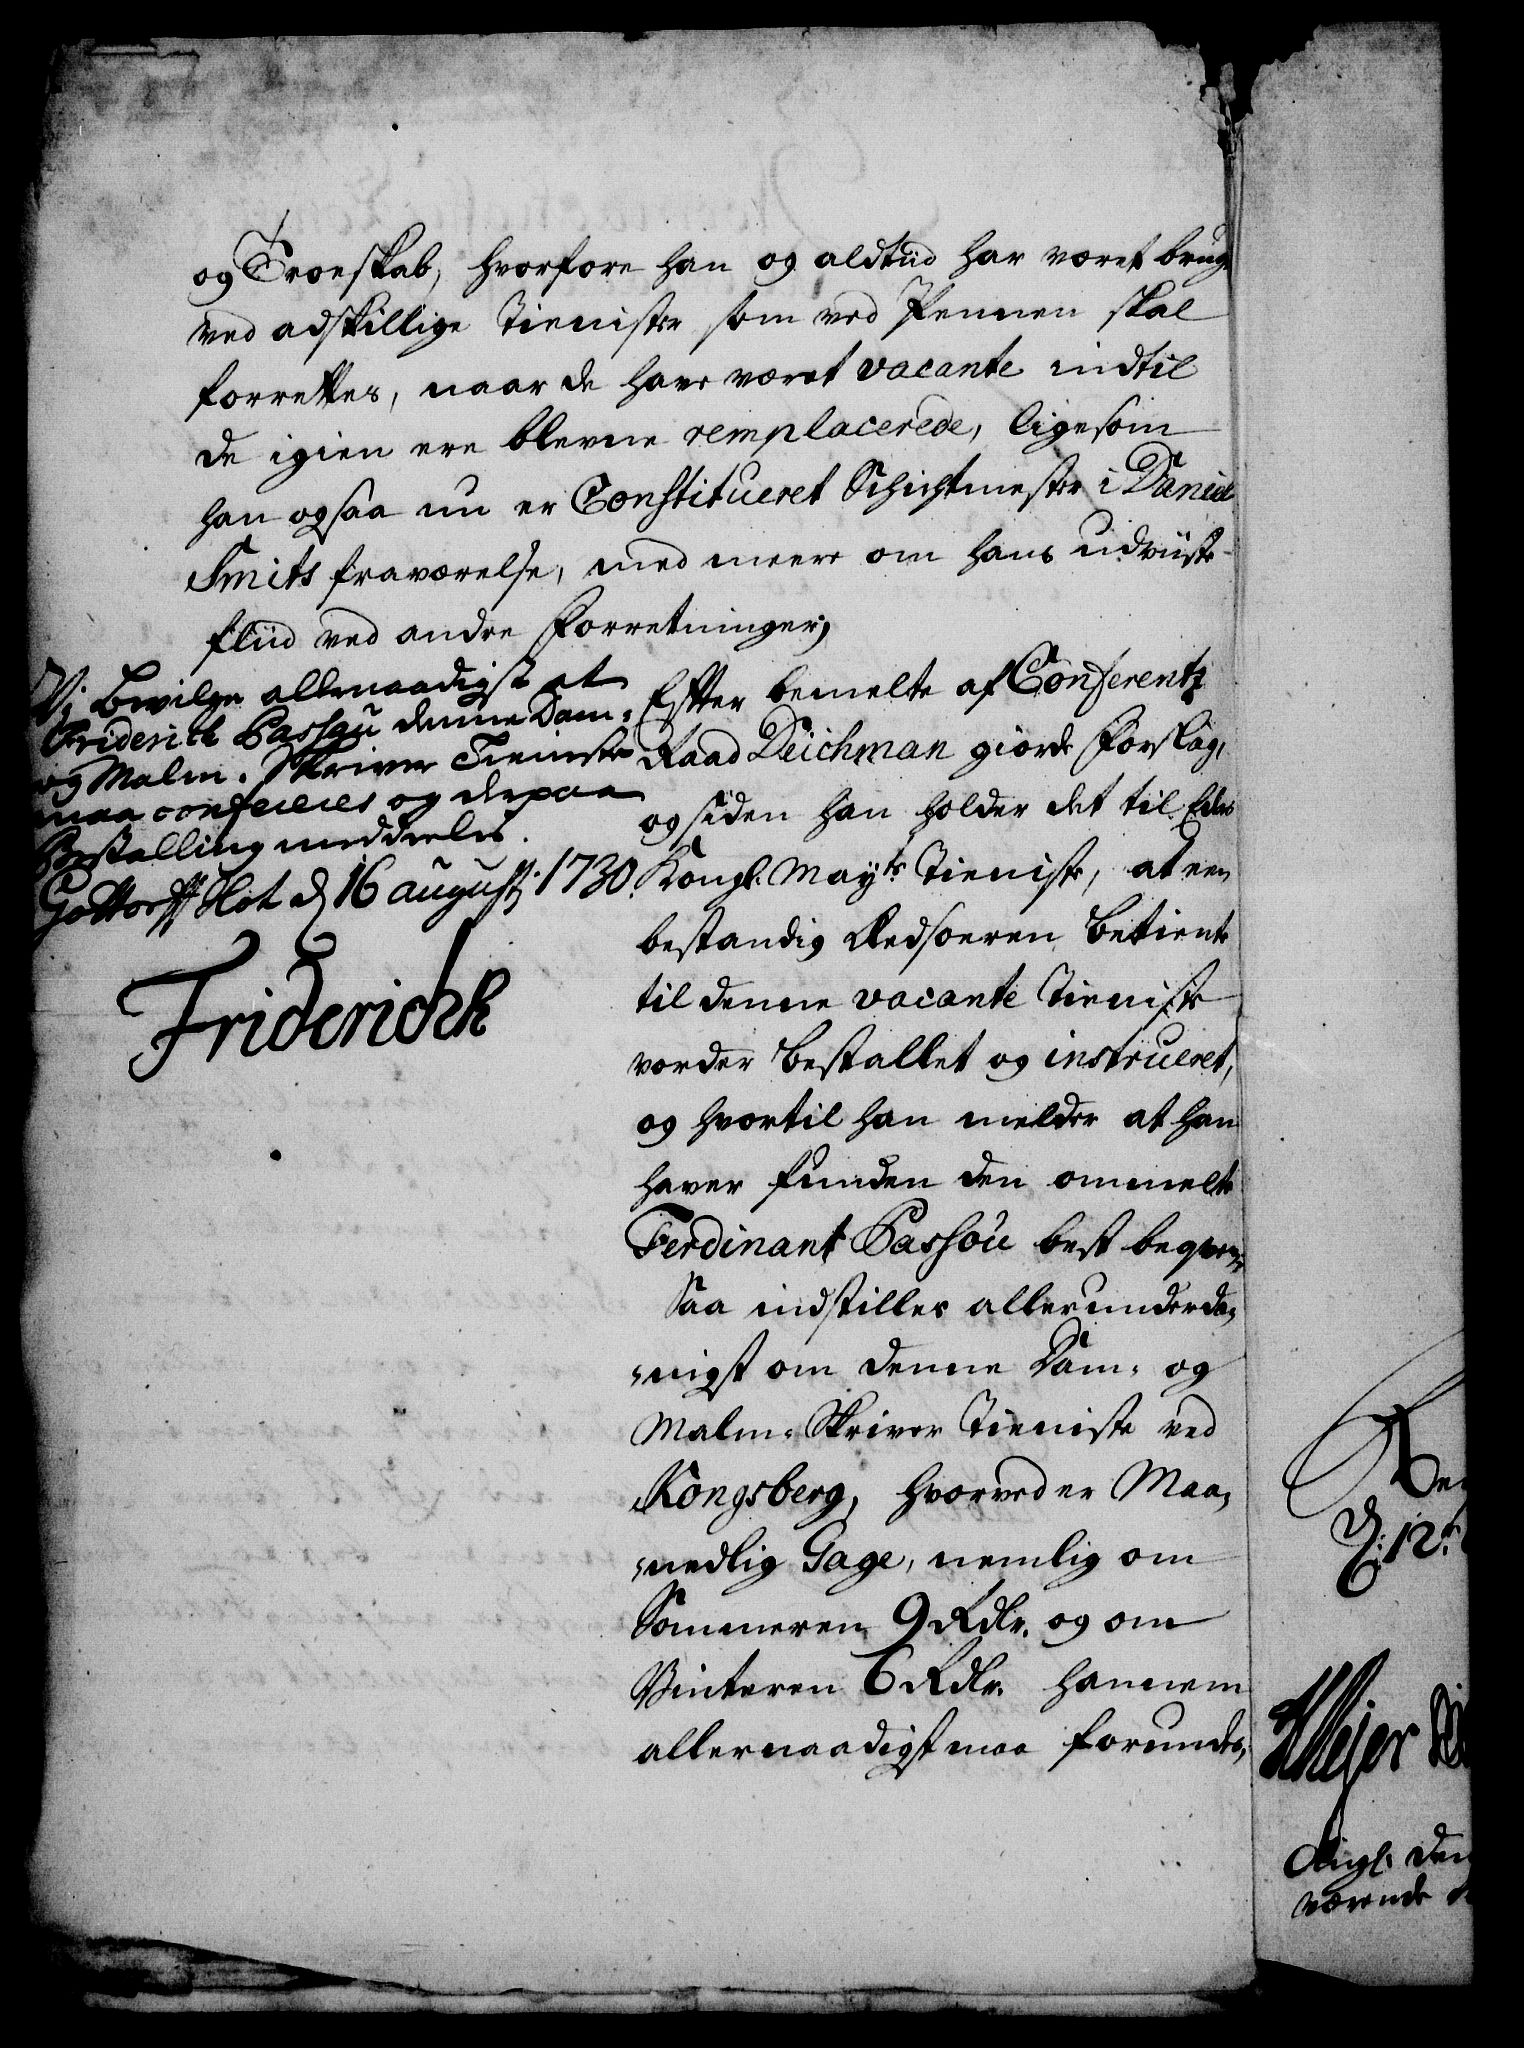 og Troeskab, hvorfore han og aldtiid har været brugt
ved adskillige Tienister som ved Pennen skal
forrettes, naar de have været vacante indtil
de igien ere blevne remplacerede, ligesom
han ogsaa nu er Constitueret Schichtmester i Daniel
Smits fraværelse, med meere om hans udviiste
fliid ved andre Forretninger;
Vi bevilge allernaadigst at
Friderich Passau denne Dam-
og Malm-Skriver Tieniste
maa confereres og derpaa
Bestalling meddeelis.
Gottorff Slot d 16 augusti 1730.
Friderich R
Efter bemelte af Conferentz
Raad Deichman giorde Forslag,
og siden han holder det til Eders
Kongl. Mayts. Tieniste, at een
bestandig Redsoeren Betiente
til denne vacante Tieniste
vorder bestallet og instrueret,
og hvortil han melder at han
haver funden den ommelte
Ferdinant Passou best beqvem;
Saa indstilles allerunderda-
-nigst om denne Dam- og
Malm-Skriver Tieniste ved
Kongsberg, hvorved er Maa-
-nedlig Gage, nemlig om
Sommeren 9 Rdlr. og om
Vinteren 6 Rdlr. hannem
allernaadigst maa forundes,
d. 12t.
Mejer
den
værende